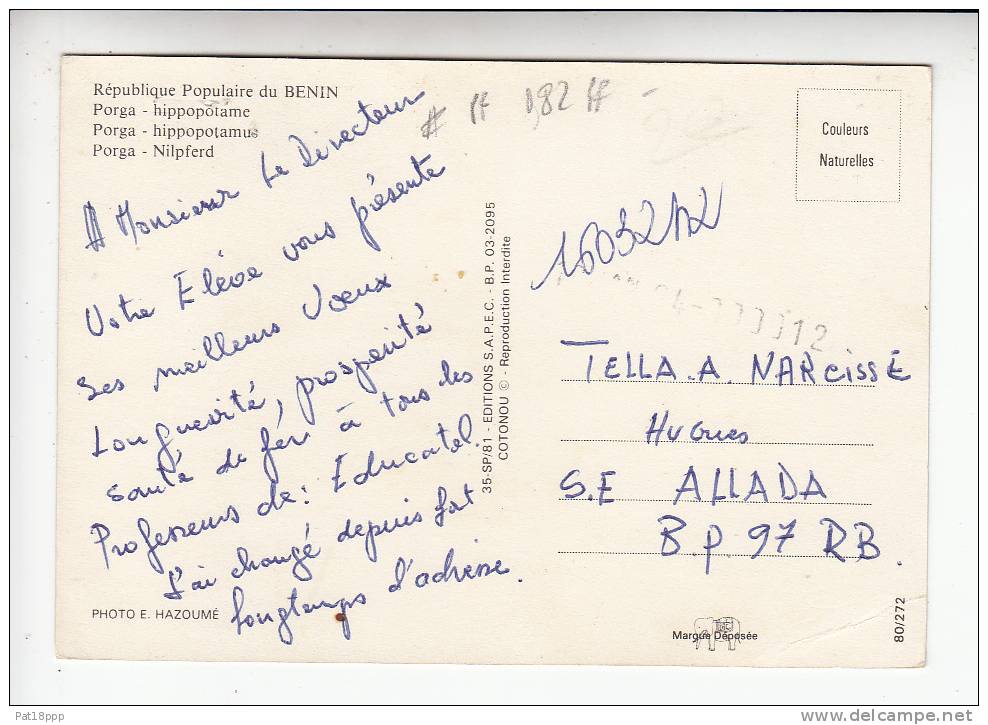 République Populaire du BENIN
Porga - hippopotame
Porga - hippopotamus
Porga - Nilpferd
A Monsieur Le Directeur
Votre Elève vous présente
Ses meilleurs Voeux
Longuevité, prospérité
santé de fer à tous les
Professeurs de: Educatel.
J'ai changé depuis fort
longtemps d'adresse.
PHOTO E. HAZOUMÉ
35-SP/81 - EDITIONS S.A.P.E.C. - B.P. 03-2095
COTONOU © - Reproduction Interdite
Couleurs
Naturelles
TELLA.A. NARCISSE
Hugues
S.E ALLADA
B.P. 97 RB.
Marque Déposée
80/272
Pat18ppp
www.delcampe.net